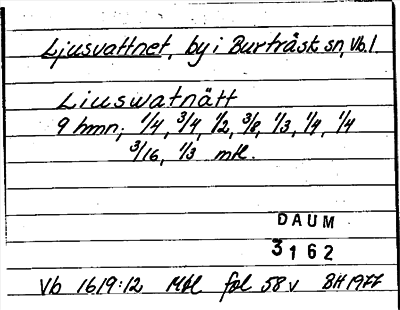 Ljusvattnet, by i Burträsk sn, Vb. l
Liuswatnätt
9 hmn; 1/4, 3/4, 1/2, 3/8, 1/3, 1/4, 1/4
3/16, 1/3 mtl.
DAUM
3162
Vb 1619:12 Mtl fol 58 v BH 1977